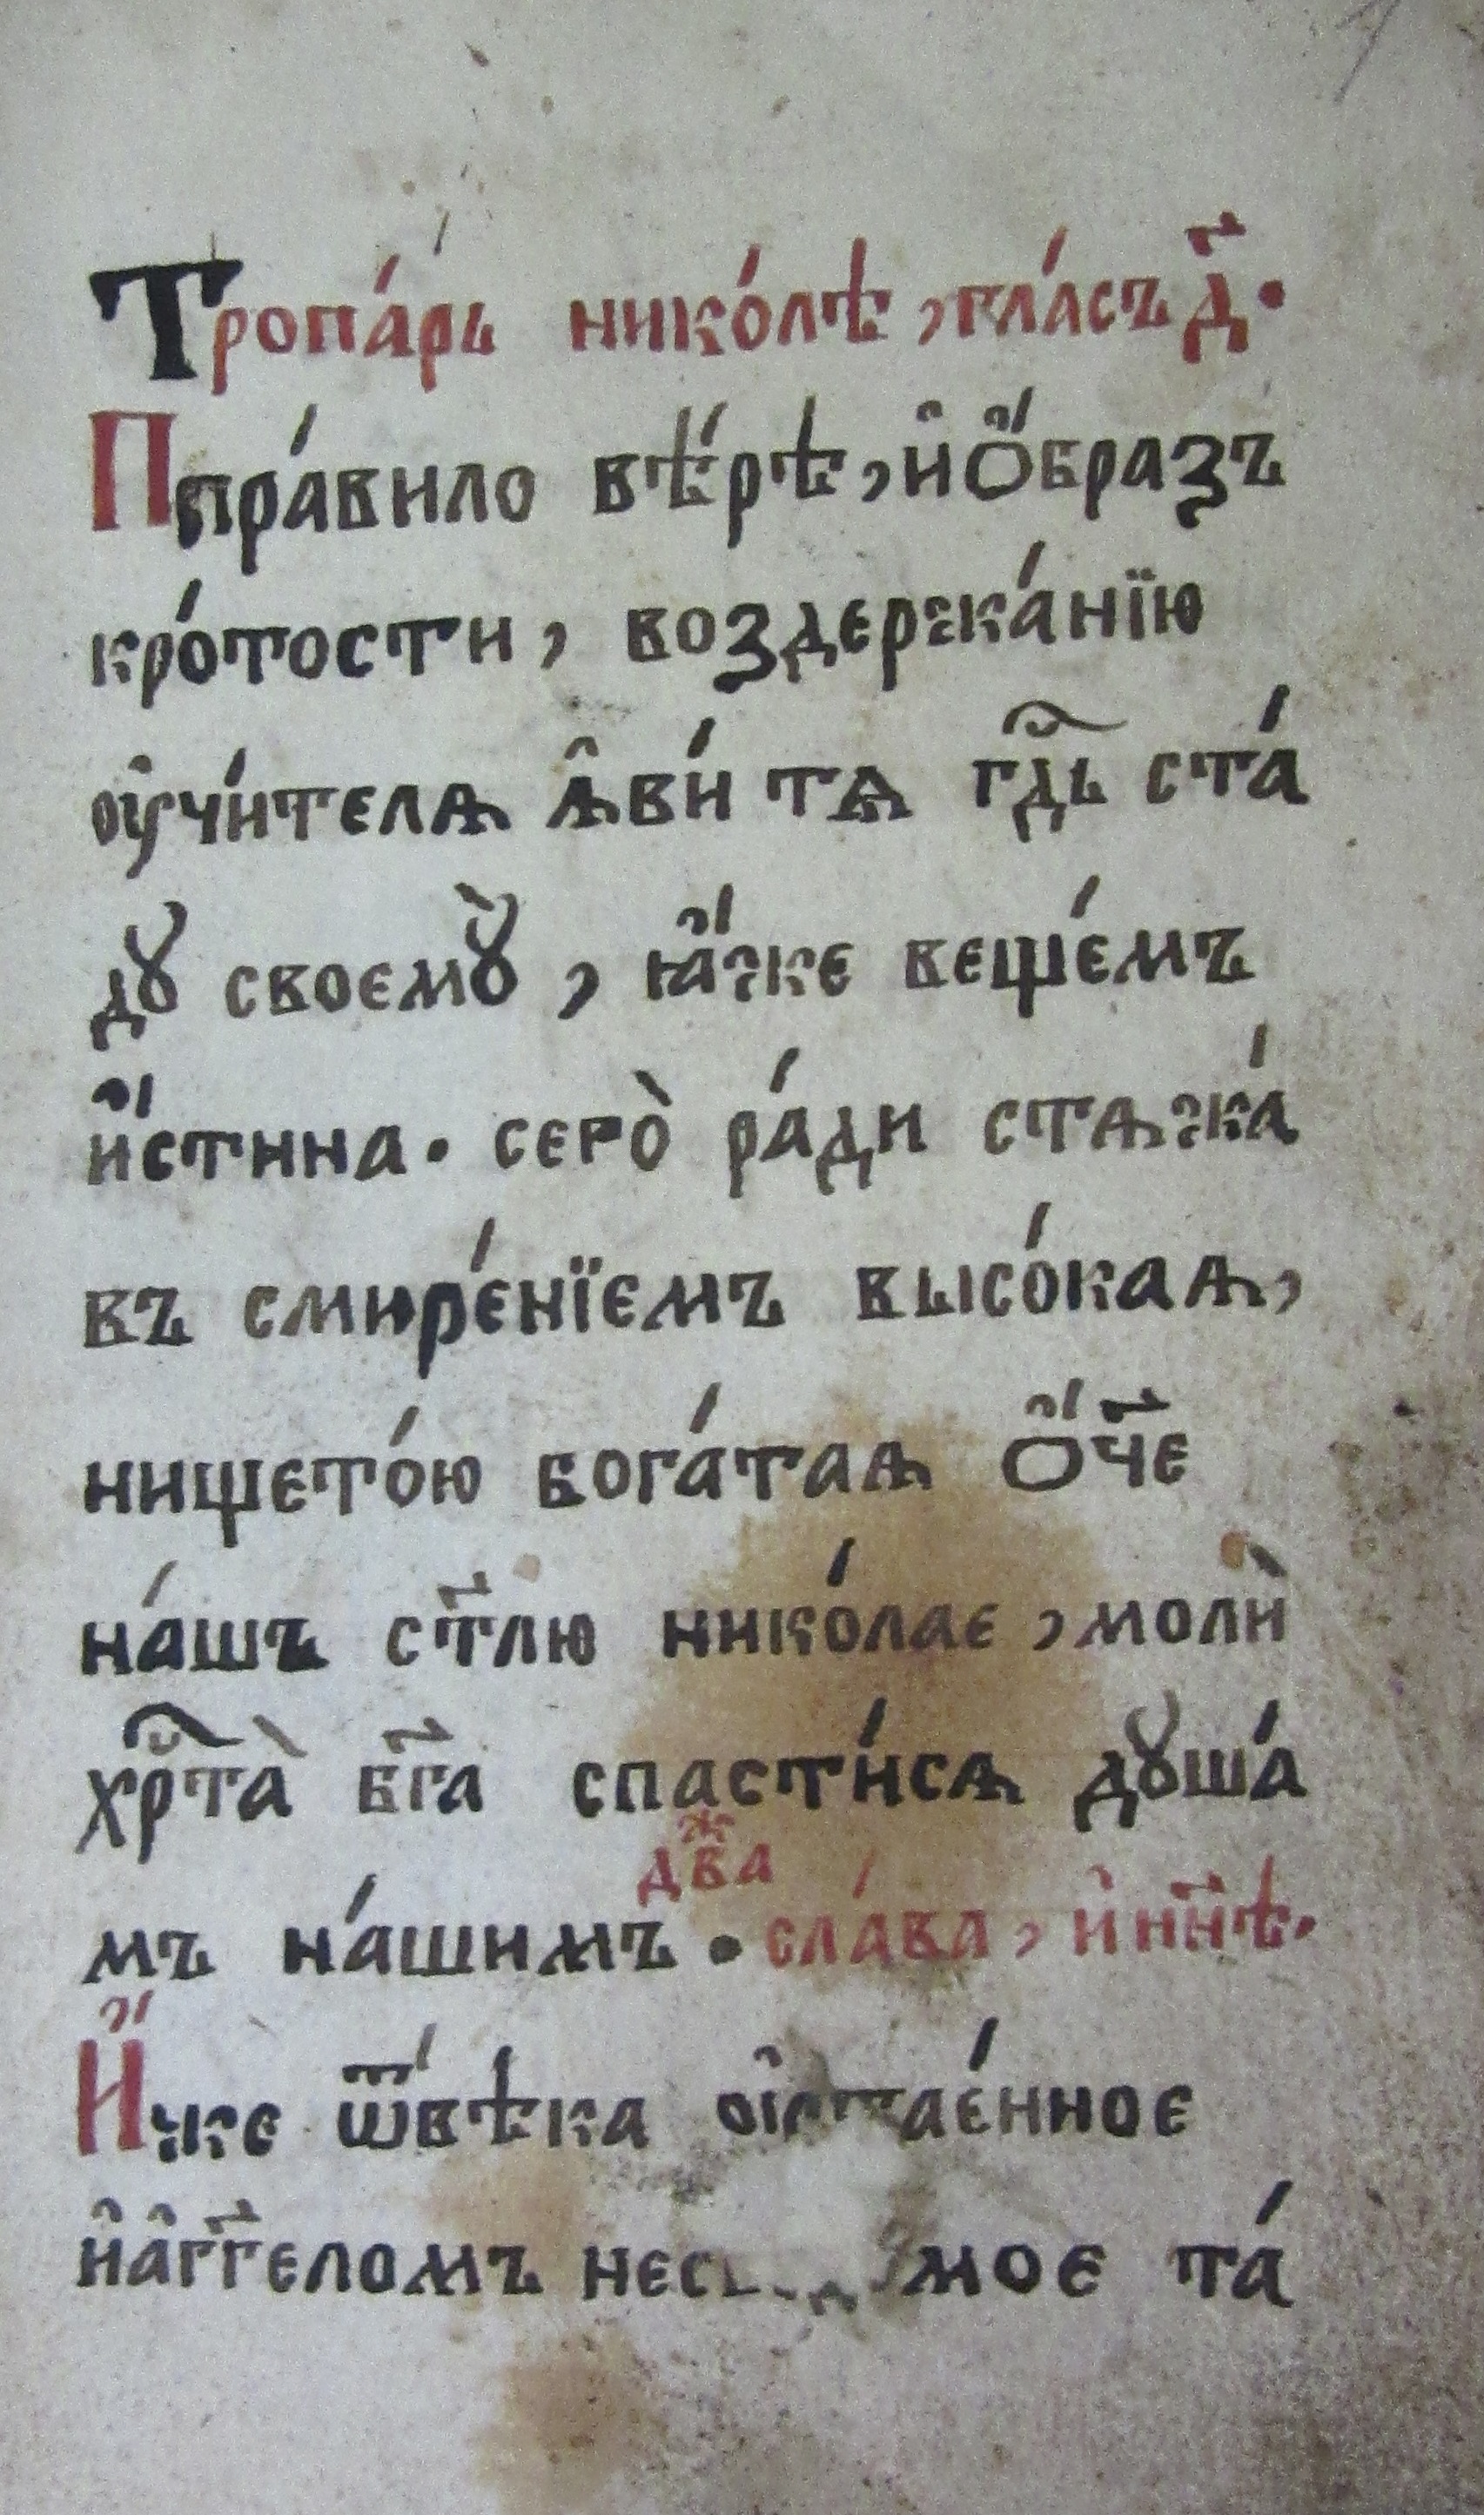 Тропа́рь нико́лѣ, гла́съ д҃.
Ппра́вило вѣ́рѣ, и҆ ѻ҆́бразъ
кро́тости, воздержа́нїю
ᲂу҆чи́телѧ ꙗ҆ви́ тѧ гдⷭ҇ь ста́
дꙋ своемꙋ̀, ꙗ҆́же веще́мъ
и҆́стина. сего̀ ра́ди стѧжа́
въ смире́нїемъ высо́каѧ,
нището́ю бога́таѧ ѻ҆́ч҃е
на́шъ ст҃лю нико́лае, молѝ
хрⷭ҇та̀ бг҃а спасти́сѧ дꙋша́
два́ж
мъ на́шимъ. сла́ва, и҆ нн҃ѣ.
И҆́же ѿ вѣ́ка
и҆ а҆гг҃еломъ мое та́